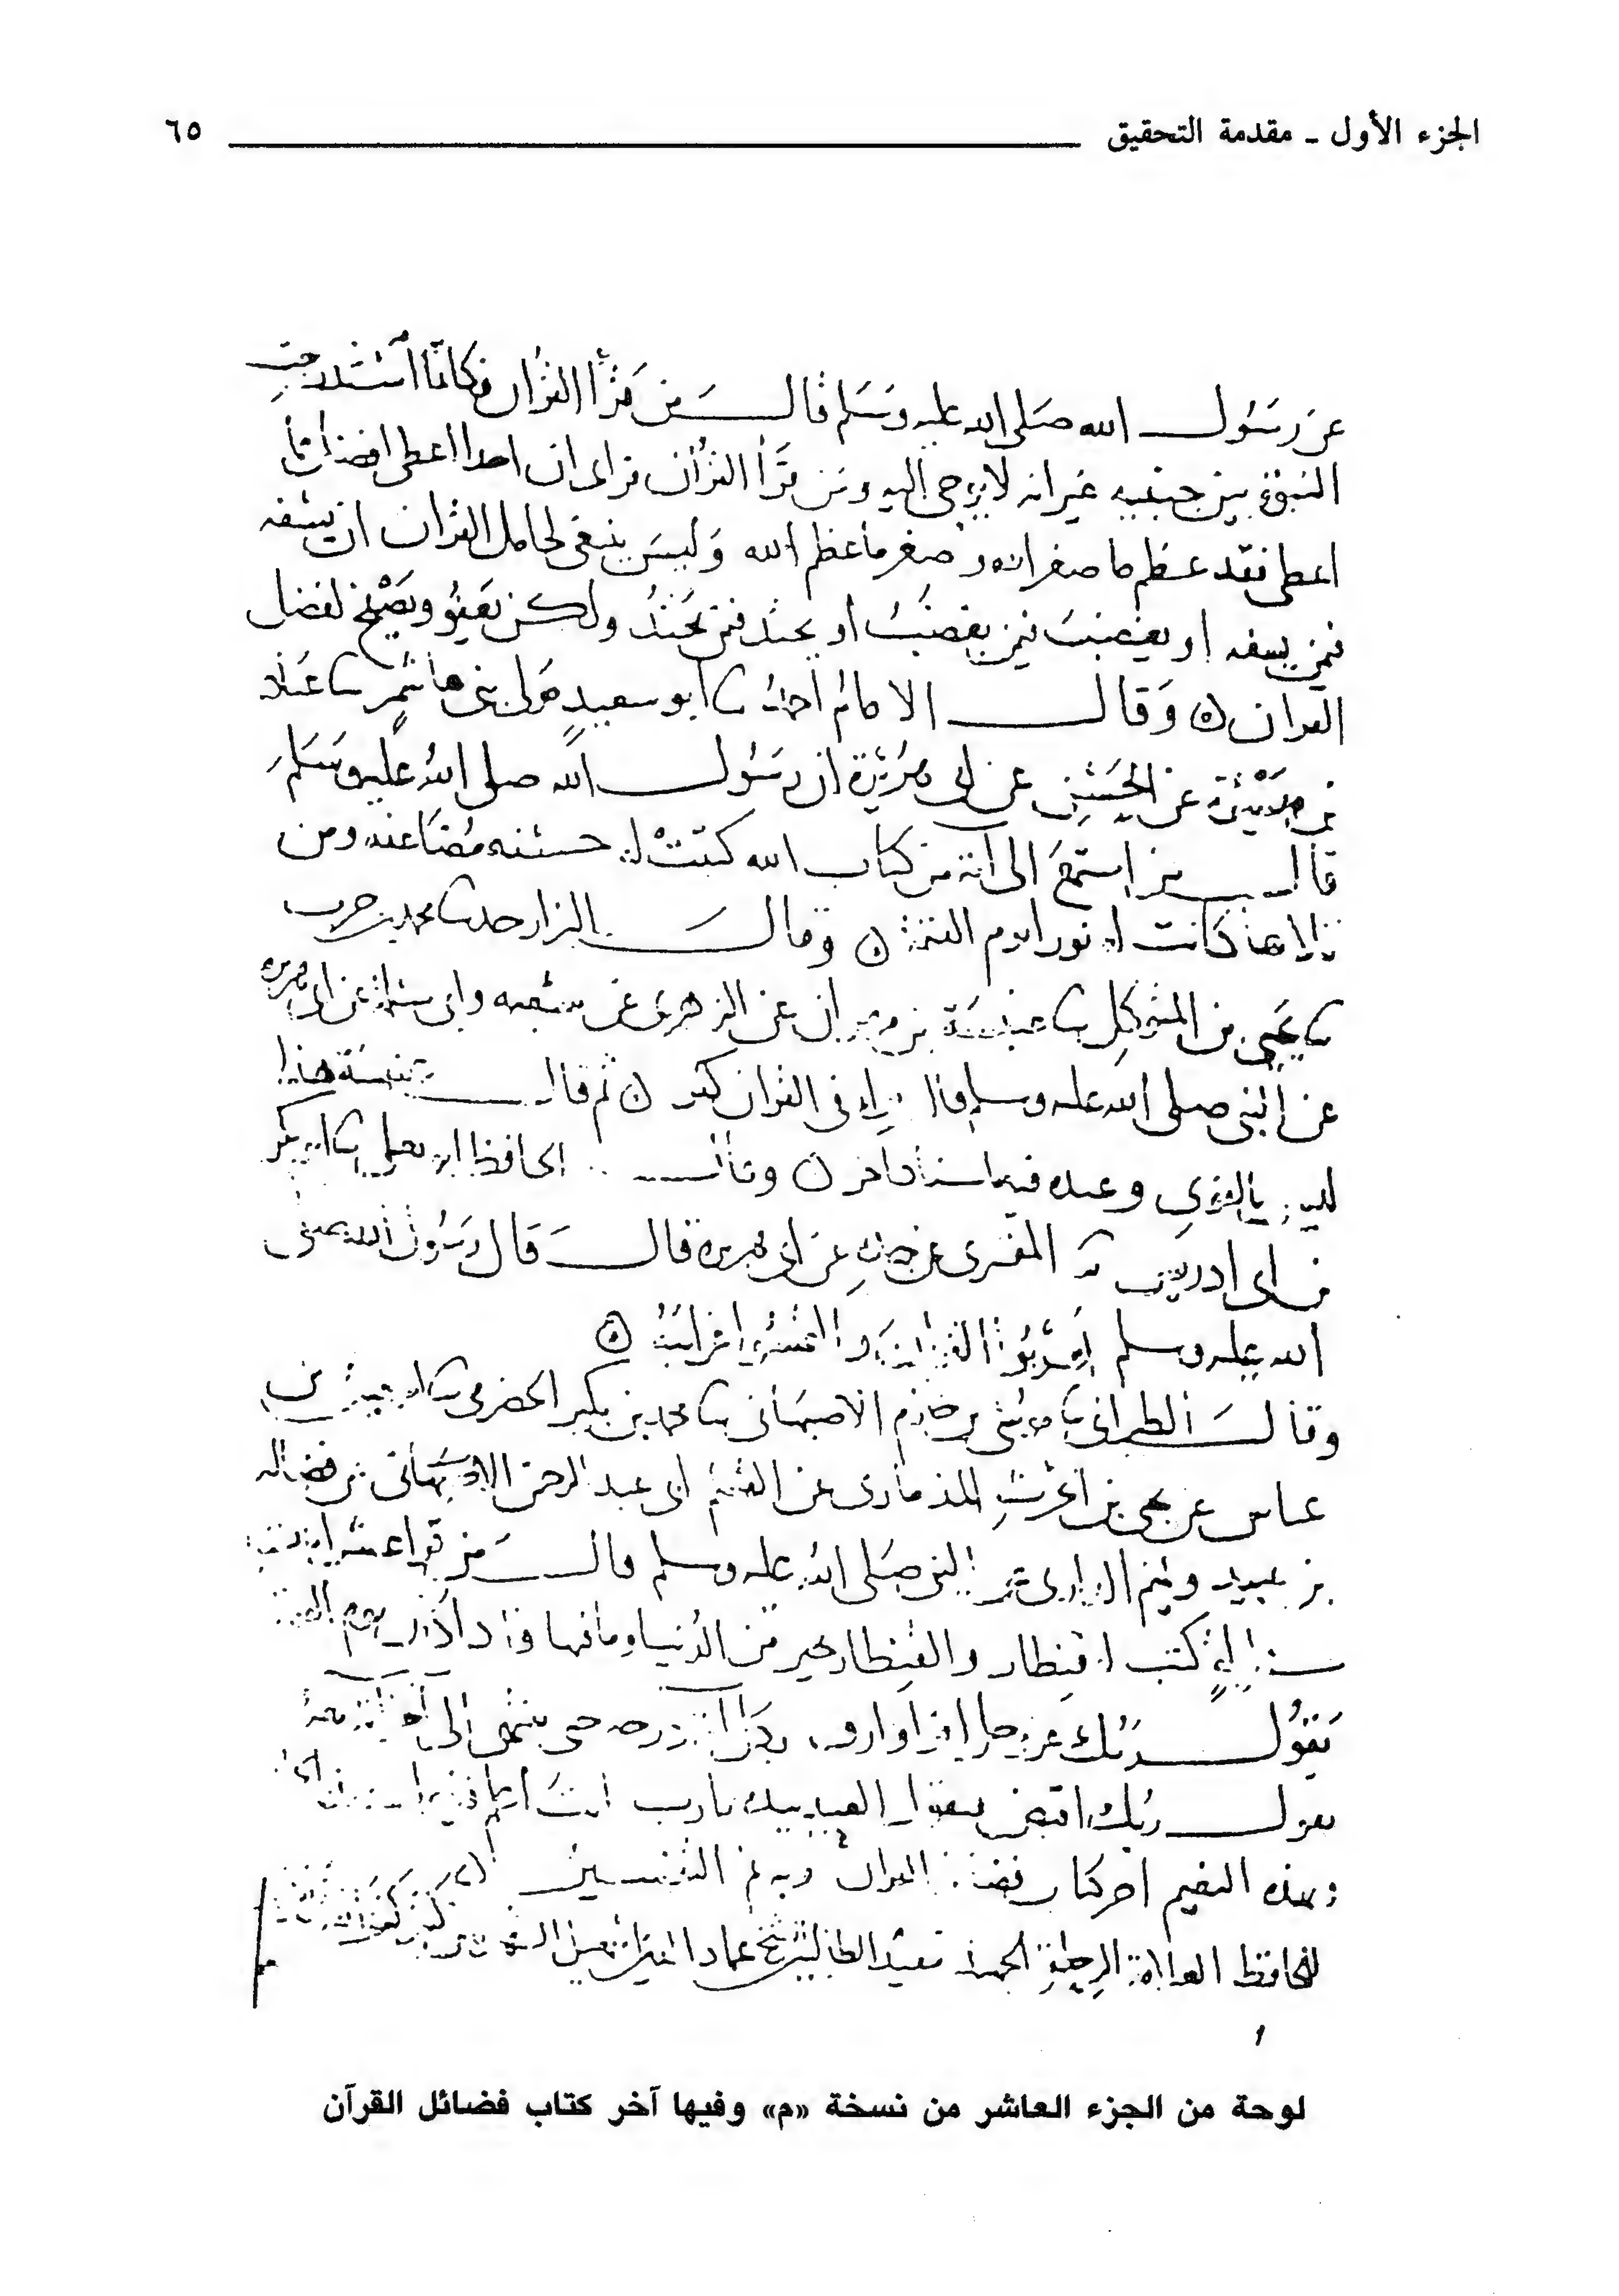 الجزء الأول ـ مقدمة التحقيق ٦٥
عن رسول الله صلى الله عليه وسلم قال من قرأ القرآن فكأنما استدرجت
النبوة بين جنبيه غير انه لا يوحى اليه ومن قرأ القرآن فراى ان احدا اعطى افضل مما
اعطى فقد عظم ما صغر الله وصغر ما عظم الله وليس ينبغي لحامل القرآن ان يسفه
فيمن يسفه او يغضب فيمن يغضب او يحتد فيمن يحتد ولكن يعفو ويصفح لفضل
القران وقال الامام احمد ثنا ابو سعيد مولى بني هاشم ثنا عباد
بن ميسرة عن الحسن عن ابي هريرة ان رسول الله صلى الله عليه وسلم
قال من استمع الى آية من كتاب الله كتبت له حسنة مضاعفة ومن
تلاها كانت له نورا يوم القيمة وقال البزار حدثنا محمد بن حرب
ثنا يحيى بن المتوكل ثنا عنبسة بن مهران عن الزهري عن سعيد وابي سلمة عن ابي هريرة
عن النبي صلى الله عليه وسلم قال مراء في القران كفر ثم قال عنبسة هذا
ليس بالقوي وعنده فيه اسناد آخر وقال الحافظ ابو يعلى ثنا ابو بكر
بن ابي ادريس المقبري عن جده عن ابي هريرة قال قال رسول الله صلى
الله عليه وسلم اعربوا القران والتمسوا غرائبه
وقال الطبراني ثنا موسى بن حازم الاصبهاني ثنا محمد بن بكير الحضرمي ثنا اسمعيل بن
عياش عن يحيى بن الحرث الذماري عن القسم ابي عبد الرحمن عن فضاله
بن عبيد وتميم الداري عن النبي صلى الله عليه وسلم قال من قرا عشر ايات
في ليلة كتب له قنطار والقنطار خير من الدنيا وما فيها فاذا كان يوم القيمة
يقول ربك عز وجل اقرا وارق بكل اية درجة حتى ينتهي الى آخر اية معه
يقول ربك اقبض فيقول العبد بيده يارب انت اعلم
النعيم اخر كتاب فضائل القران وبه تم التفسير
للحافظ العلامة الرحلة الشيخ عماد الدين اسمعيل
لوحة من الجزء العاشر من نسخة «م» وفيها آخر كتاب فضائل القرآن